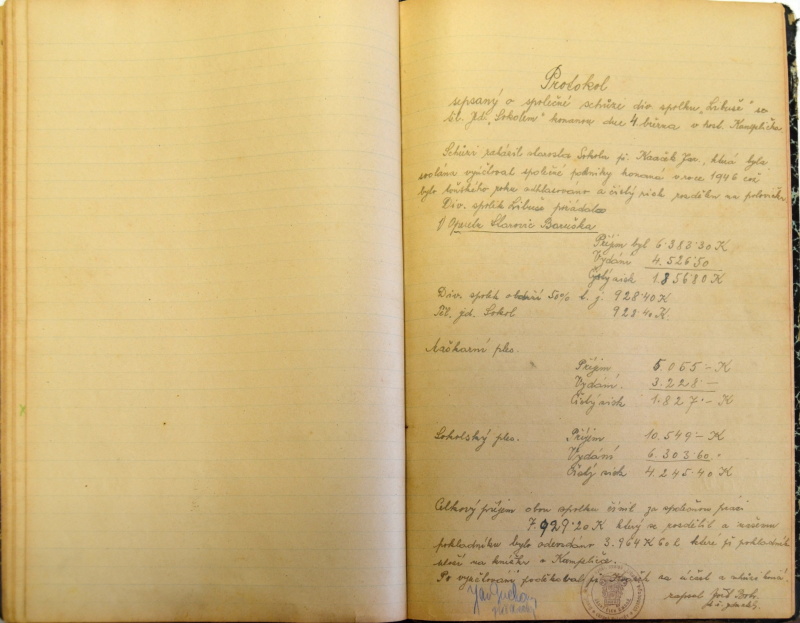 Protokol
sepsaný o společné schůzi div. spolku „Libuše" se
těl. jed. „Sokolem" konanou dne 4. března v host. Kampelička
Schůzi zahájil starosta Sokola p. Jar., která byla
svolána vyúčtovat společné podniky konané v roce 1946 což
bylo loňského roku odhlasováno a čistý zisk rozdělen na polovičku
Div. spolek Libuše pořádal
1) Operetu Slavovic Baruška
Příjem byl 6.383.30 K
Vydání 4.526.50
Čistý zisk 1.856.80 K
Div. spolek obdrží 50% t. j. 928.40 K
Těl. jed. Sokol 928.40 K.
Maškarní ples.
Příjem 5.055.- K
Vydání. 3.228.-
Čistý zisk 1.827.- K
Sokolský ples. Příjem 10.549.- K
Vydání 6.303.60.
Čistý zisk 4.245.40 K
Celkový příjem obou spolku činil za společnou práci
7.929.20 K který se rozdělil a našemu
pokladníku bylo odevzdáno 3.964 K 60 h, které p. pokladník
složí na knížku v Kampeličce.
Po vyúčtování poděkoval p. za účast a schůze končí.
zapsal